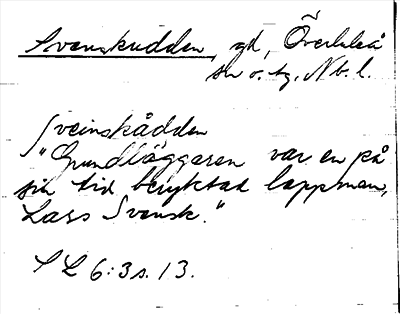 Svenskudden, gd, Överluleå
sn o. tg, Nb. l.
Sveinskådden
"Grundläggaren var en på
sin tid beryktad lappman,
Lars Svensk."
SL 6:3 s. 13.